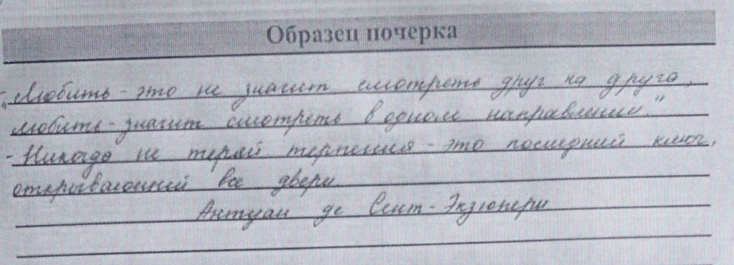 Образец почерка
- „Любить - это не значит смотреть друг на друга,
любить - значит смотреть в одном направлении."
- Никогда не теряй терпения - это последний ключ,
открывающий все двери.
Антуан де Сент-Экзюпери